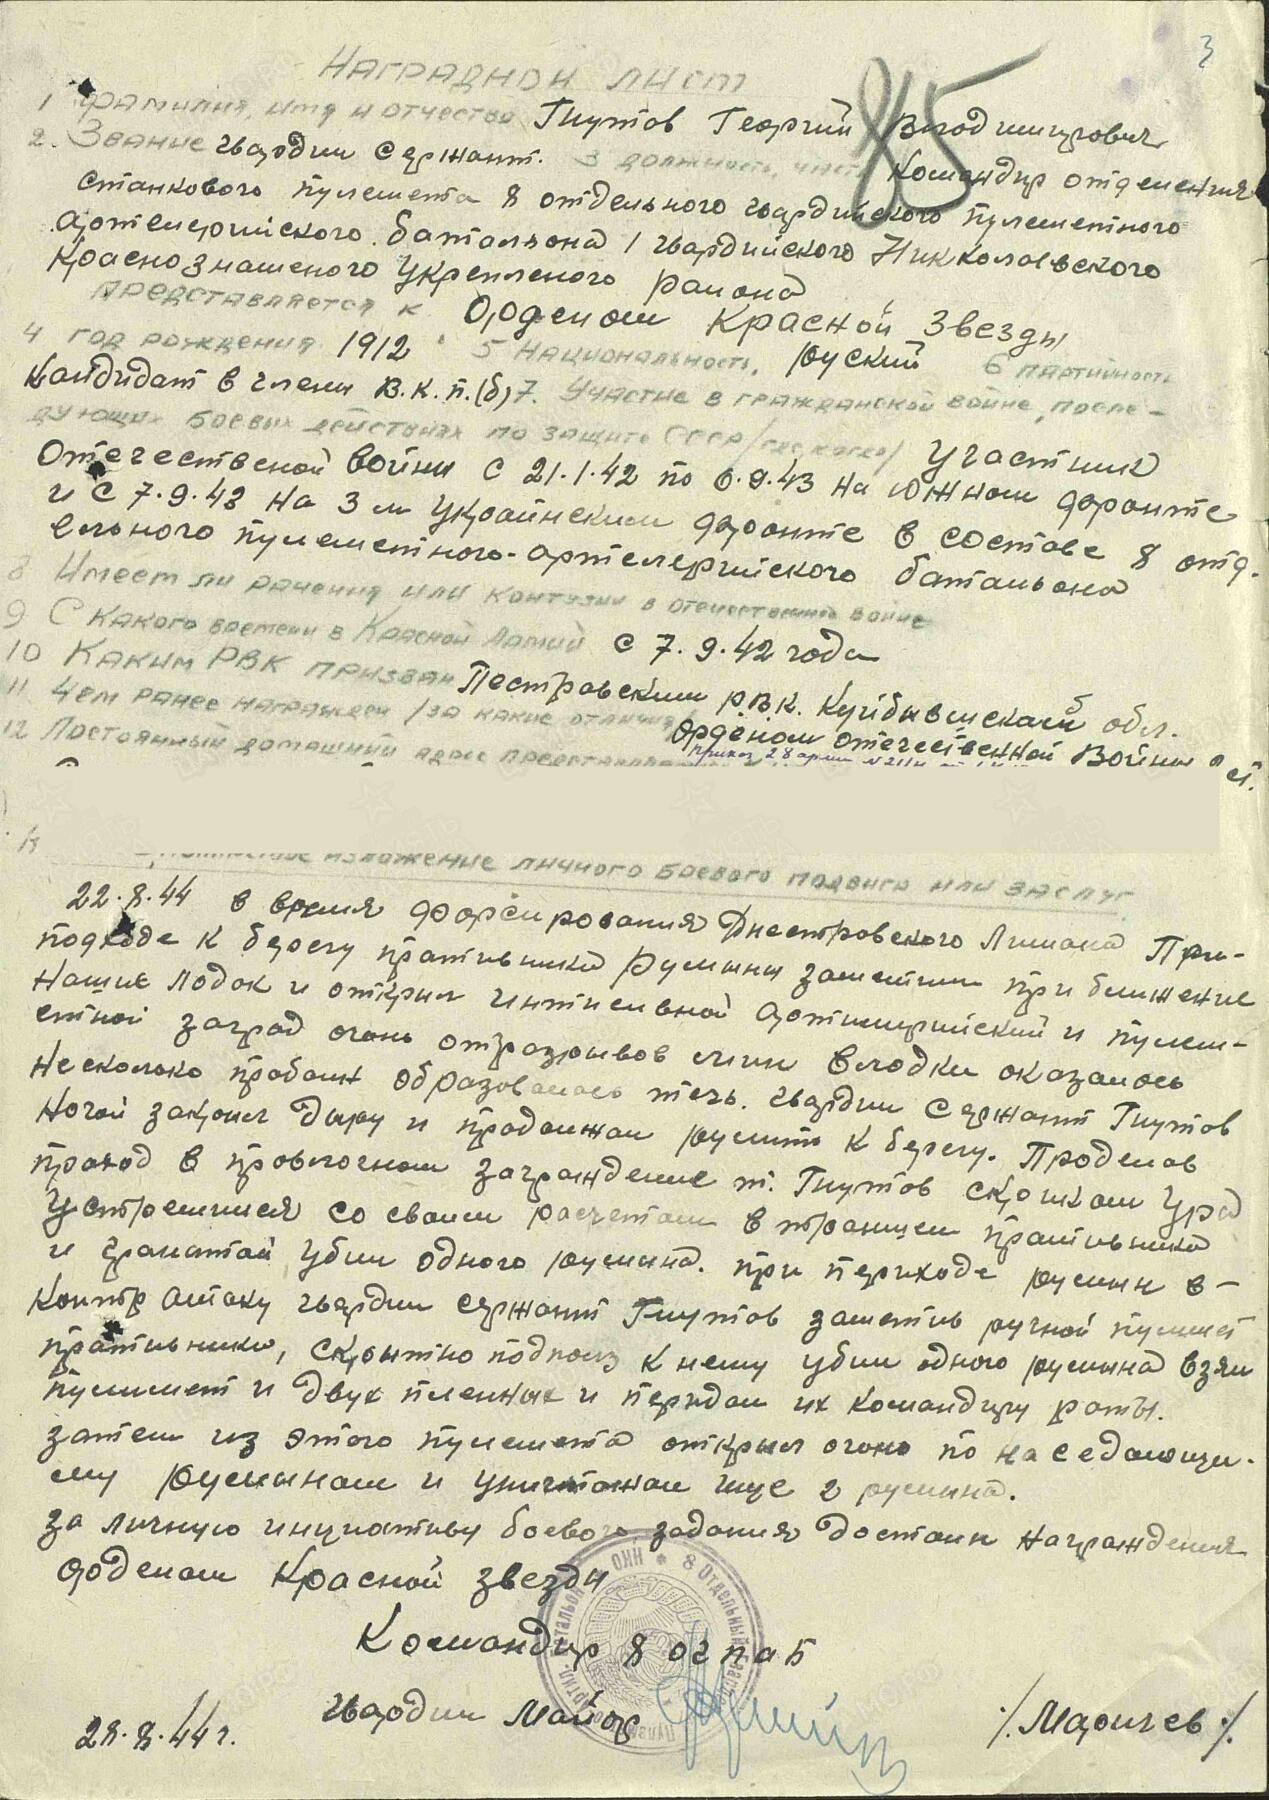 3
85
Наградной лист
1 Фамилия, имя и отчество Глутов Георгий Владимирович
2. Звание гвардии сержант. 3 должность, часть Командир отделения
станкового пулемета 8 отдельного гвардийского пулеметного
артелерийского батальона 1 гвардийского Никколаевского
Краснознаменого Укрепленого района
представляется к Орденом Красной Звезды
4 год рождения 1912 5 Национальность, руский 6 партийность
Кандидат в члены В.К.П.(б) 7. Участие в гражданской войне, после-
дующих боевых действиях по защите СССР /где, когда/ Участник
Отечественой войны с 21.1.42 по 6.9.43 на южном фронте
и с 7.9.43 на 3м Украинским фронте в составе 8 отд.
ельного пулеметного-артелерийского батальона
8 Имеет ли ранения или контузии в отечественной войне
9 С какого времени в Красной Армии с 7.9.42 года
10 Каким РВК призван Пестровским Р.В.К. Куйбышевской обл.
11 Чем ранее награжден /за какие отличия/ Орденом отечественной Войны 2 ст.
12 Постоянный домашний адрес приказ 28 арми
изложение личного боевого подвига или заслуг
22.8.44 в время форсирования Днестровского Лимана При-
подходе к берегу противника румыны заметили приближение
Наших лодок и открыл интисивной артилерийский и пулем-
етной заград огонь отразрывов мин влодки оказалось
несколько пробоин образовалось течь. гвардии Сержант Глутов
ногой закрыл дыру и продолжал рулить к берегу. Проделав
проход в проволочном заграждение т. Глутов скриком Ура
Устремился со своим расчетом в траншеи противника
и гранатой убил одного румына. При периходе румын в-
контратаку гвардии сержант Глутов заметив ручной пулимет
противника, скрытно подполз к нему убил одного румына взял
пулимет и двух пленных и передал их командиру роты.
затем из этого пулемета открыл огонь по наседающи-
му румынам и уничтожал ище 2 румына.
За личную инциативу боевого задания достоин награждения
орденом Красной звезды
Командир 8 огпаб
гвардии майор /Маричев/
28.8.44г.